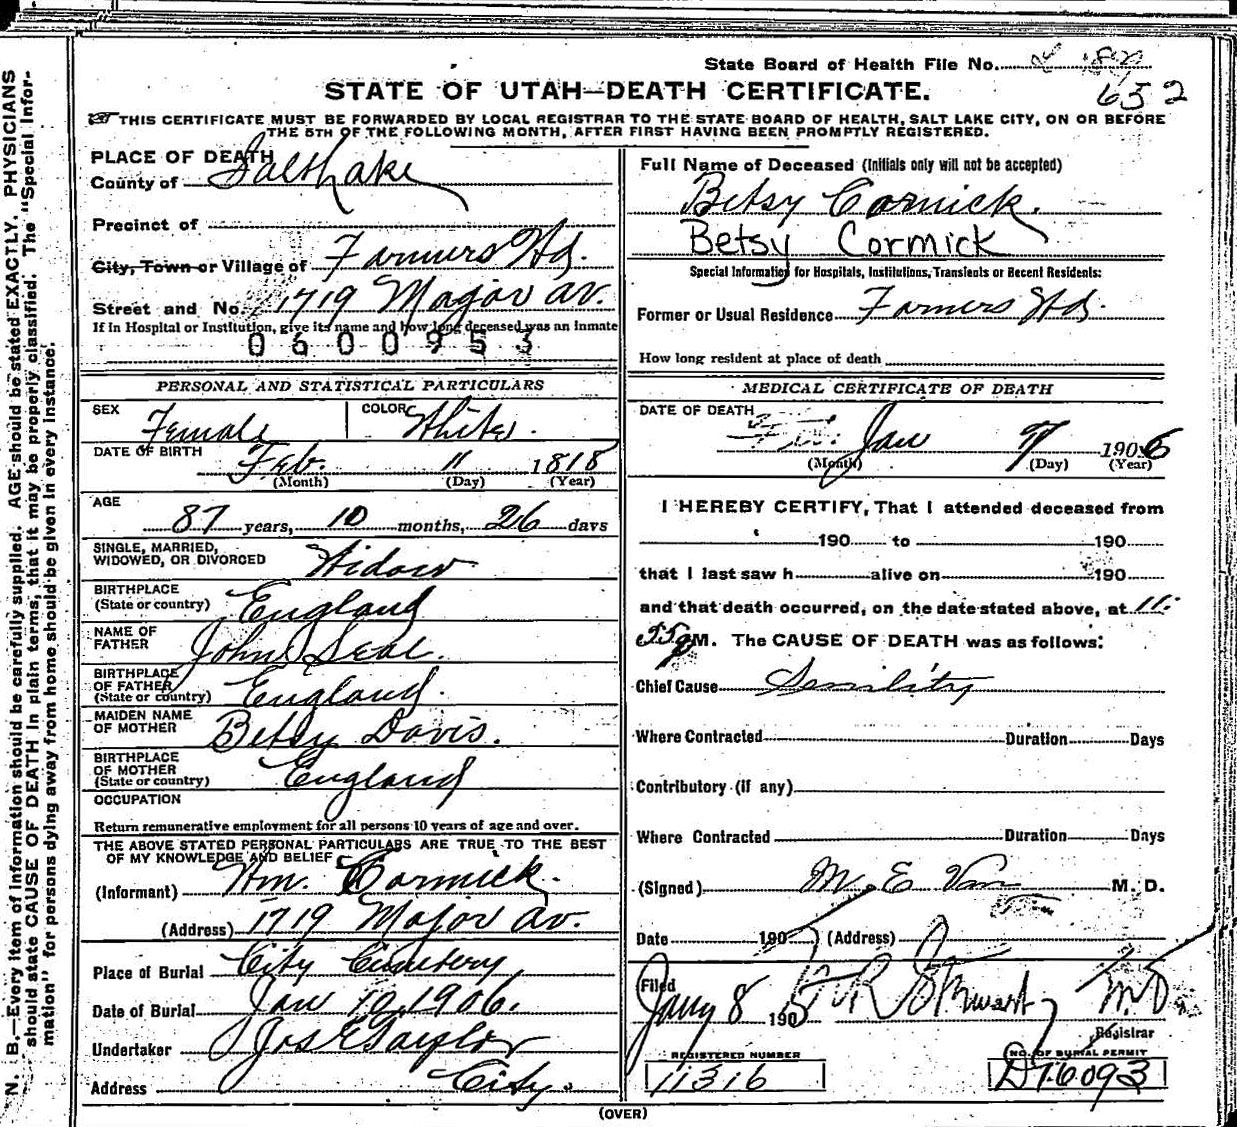 N. B.—Every item of information should be carefully supplied. AGE should be stated EXACTLY. PHYSICIANS
should state CAUSE OF DEATH in plain terms, that it may be properly classified. The "Special Infor-
mation" for persons dying away from home should be given in every instance.
State Board of Health File No.
652
STATE OF UTAH—DEATH CERTIFICATE.
THIS CERTIFICATE MUST BE FORWARDED BY LOCAL REGISTRAR TO THE STATE BOARD OF HEALTH, SALT LAKE CITY, ON OR BEFORE
THE 5TH OF THE FOLLOWING MONTH, AFTER FIRST HAVING BEEN PROMPTLY REGISTERED.
PLACE OF DEATH
County of Salt Lake
Precinct of
City, Town or Village of Farmers Wd.
Street and No. 1719 Major av.
If in Hospital or Institution, give its name and how long deceased was an inmate
0600953
PERSONAL AND STATISTICAL PARTICULARS
SEX Female COLOR White.
DATE OF BIRTH Feb. 11 1818
(Month) (Day) (Year)
AGE
87 years, 10 months, 26 days
SINGLE, MARRIED,
WIDOWED, OR DIVORCED Widow
BIRTHPLACE
(State or country) England
NAME OF
FATHER John Seal.
BIRTHPLACE
OF FATHER
(State or country) England.
MAIDEN NAME
OF MOTHER Betsy Davis.
BIRTHPLACE
OF MOTHER
(State or country) England
OCCUPATION
Return remunerative employment for all persons 10 years of age and over.
THE ABOVE STATED PERSONAL PARTICULARS ARE TRUE TO THE BEST
OF MY KNOWLEDGE AND BELIEF
(Informant) Wm. Cormick.
(Address) 1719 Major av.
Place of Burial City Cemetery,
Date of Burial Jan 10, 1906.
Undertaker Jos E Taylor
Address City.
Full Name of Deceased (Initials only will not be accepted)
Betsy Cormick.
Betsy Cormick
Special Information for Hospitals, Institutions, Transients or Recent Residents:
Former or Usual Residence Farmers Wd.
How long resident at place of death
MEDICAL CERTIFICATE OF DEATH
DATE OF DEATH
Jan 7 1906
(Month) (Day) (Year)
I HEREBY CERTIFY, That I attended deceased from
190 to 190
that I last saw h alive on 190
and that death occurred, on the date stated above, at 11:
55 P M. The CAUSE OF DEATH was as follows:
Chief Cause Senility
Where Contracted Duration Days
Contributory (if any)
Where Contracted Duration Days
(Signed) M. E. Van M. D.
Date 190 (Address)
Filed
Jany 8 190 Stewart M.D
Registrar
REGISTERED NUMBER
11316
NO. OF BURIAL PERMIT
D16093
(OVER)